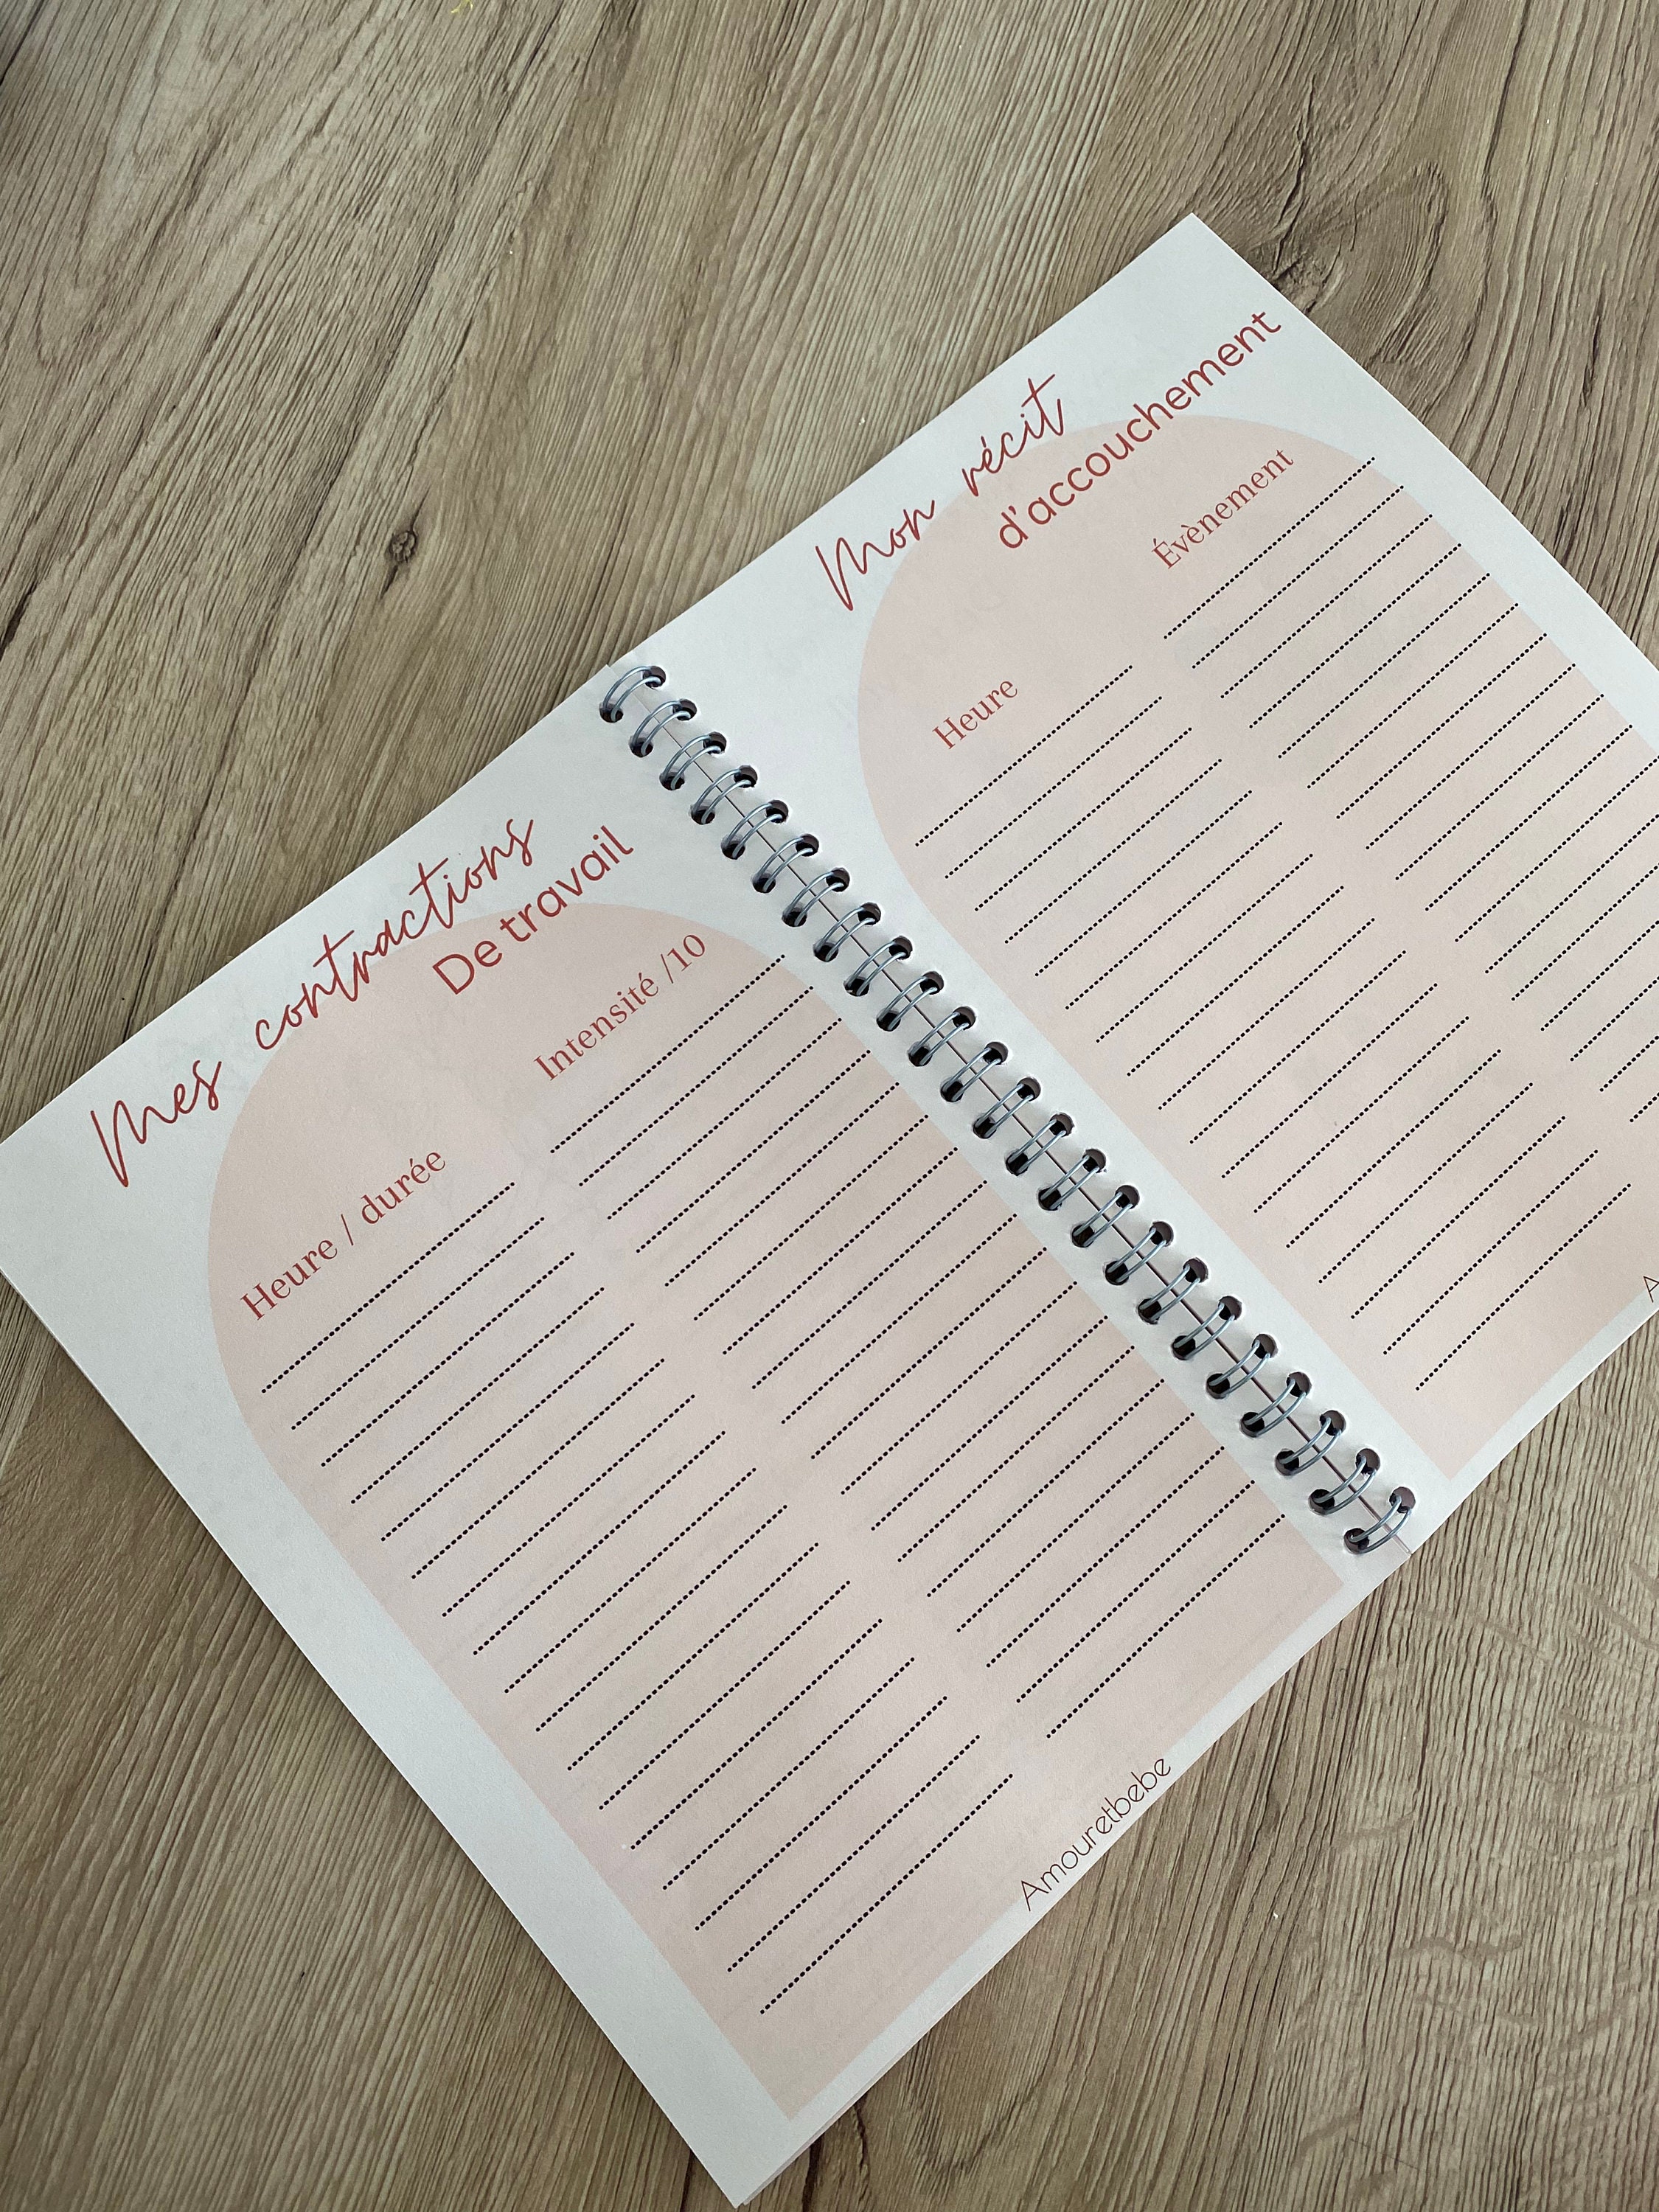 Mes contractions
De travail
Heure / durée
Intensité /10
Amouretbebe
Mon récit
d'accouchement
Heure
Évènement
A